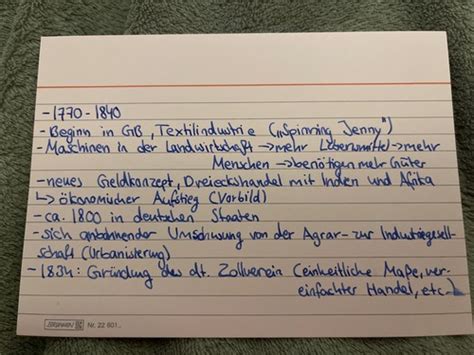 - 1770 - 1840
- Beginn in GB, Textilindustrie („Spinning Jenny“)
- Maschinen in der Landwirtschaft → mehr Lebensmittel → mehr
Menschen → benötigen mehr Güter
- neues Geldkonzept, Dreieckshandel mit Indien und Afrika
↳ ökonomischer Aufstieg (Vorbild)
- ca. 1800 in deutschen Staaten
- sich anbahnender Umschwung von der Agrar- zur Industriegesell-
schaft (Urbanisierung)
- 1834: Gründung des dt. Zollverein (einheitliche Maße, ver-
einfachter Handel, etc.)
Nr. 22 601